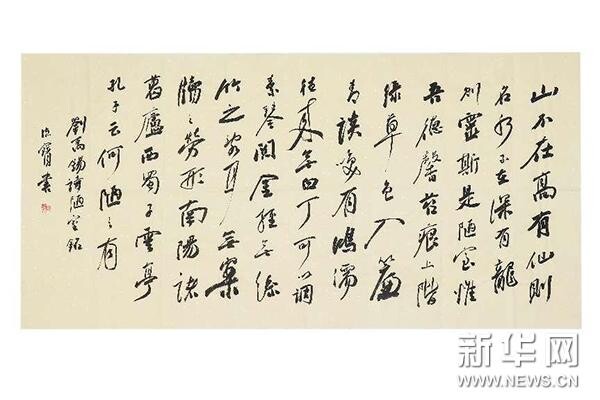 山不在高有仙則
名水不在深有龍
則靈斯是陋室惟
吾德馨苔痕上階
綠草色入簾
青談笑有鴻儒
往來無白丁可調
素琴閱金經無絲
竹之亂耳無案
牘之勞形南陽諸
葛廬西蜀子雲亭
孔子云何陋之有
劉禹錫詩陋室銘
新华网
WWW.NEWS.CN